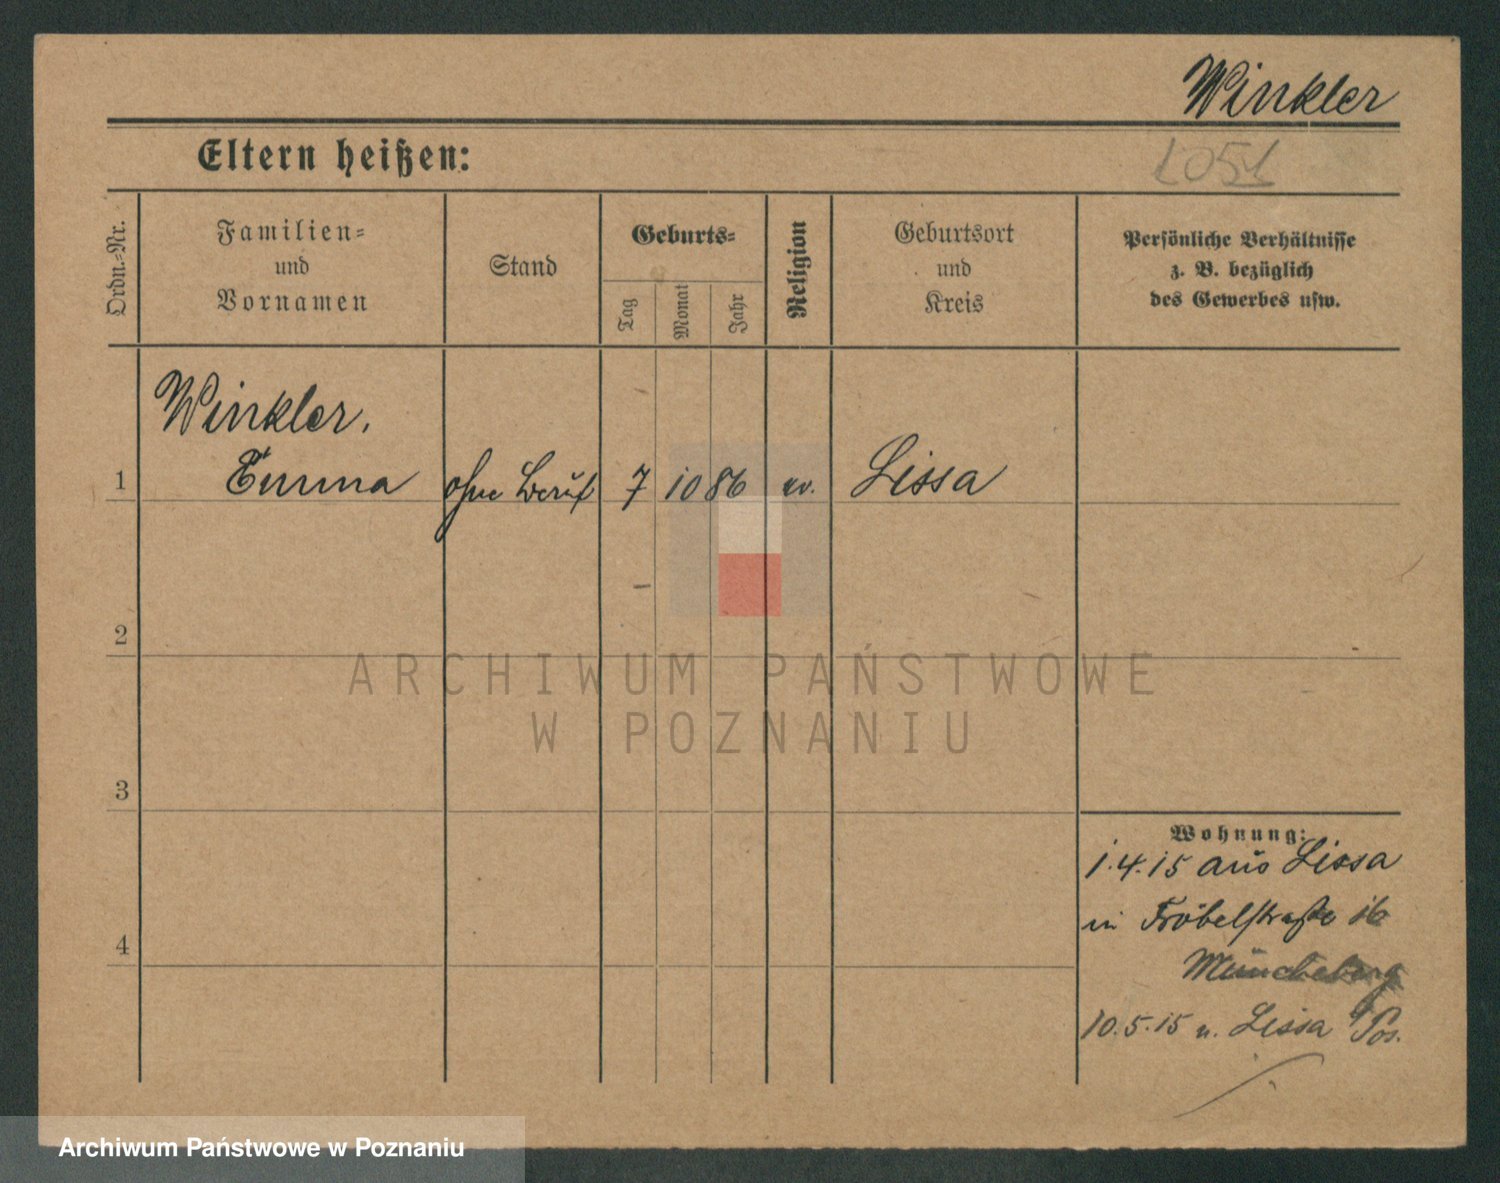 Winkler
1051
Eltern heißen:
Ordn.-Nr.
Familien-
und
Vornamen
Stand
Geburts-
Tag
Monat
Jahr
Religion
Geburtsort
und
Kreis
Persönliche Verhältnisse
z. B. bezüglich
des Gewerbes usw.
Winkler,
1 Emma ohne Beruf 7 10 86 ev. Lissa
2
3
4
Wohnung:
1.4.15 aus Lissa
in Fröbelstraße 16
Müncheberg
10.5.15 n. Lissa Pos.
ARCHIWUM PAŃSTWOWE
W POZNANIU
Archiwum Państwowe w Poznaniu